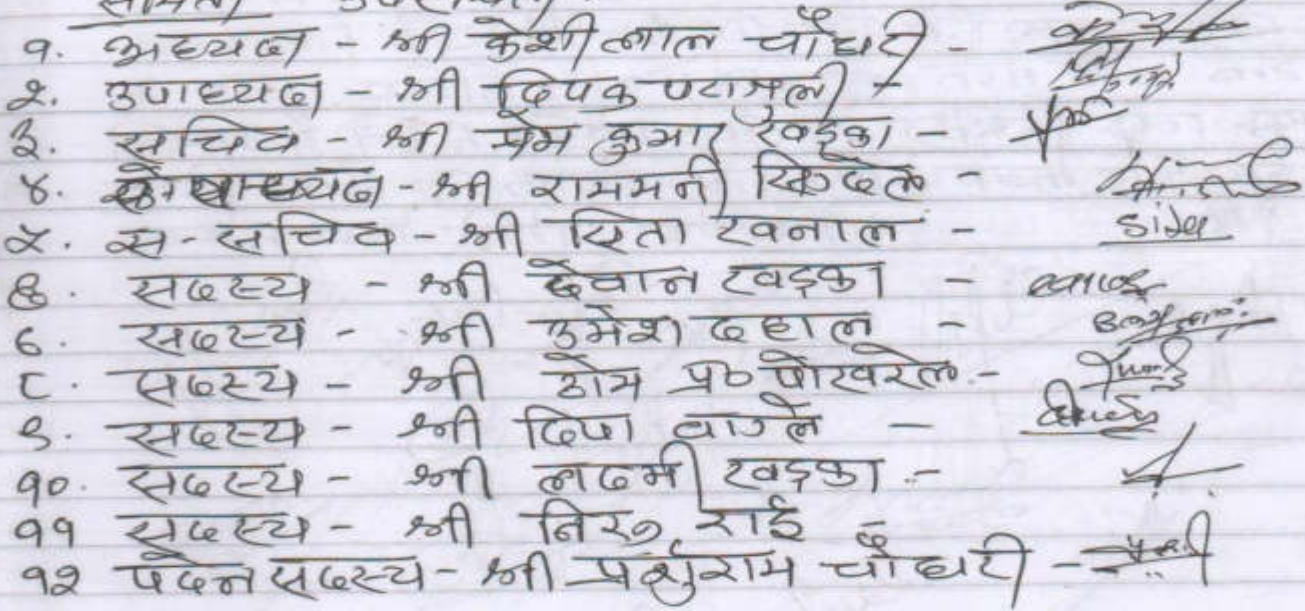 समिती उपस्थिती
१. अध्यक्ष - श्री केशीलाल चौधरी -
२. उपाध्यक्ष - श्री दिपक पराजुली -
३. सचिव - श्री प्रेम कुमार खड्का -
४. कोषाध्यक्ष - श्री राममनी सिग्देल -
५. स-सचिव - श्री सिता खनाल - sita
६. सदस्य - श्री देवान खड्का -
७. सदस्य - श्री उमेश दहाल -
८. सदस्य - श्री ओम प्र० पोखरेल -
९. सदस्य - श्री दिपा वाग्ले -
१०. सदस्य - श्री लक्ष्मी खड्का -
११ सदस्य - श्री निरु राई
१२ पदेन सदस्य - श्री पर्शुराम चौधरी -